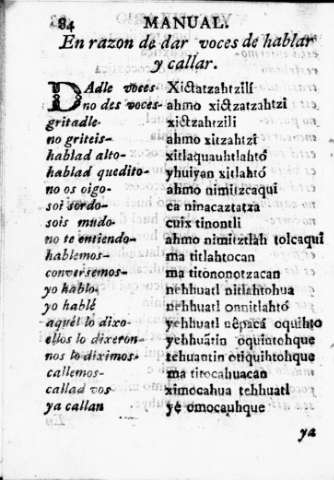 84 MANUAL.
En razon de dar voces de hablar
y callar.
DAdle voces- Xictatzahtzilí
no des voces- ahmo xictzatzahtzi
gritadle- xictzahtzili
no griteis- ahmo xitzahtzi
hablad alto- xitlaquauhtlahtó
hablad quedito- yhuiyan xitlahtó
no os oigo- ahmo nimitzcaqui
soi sordo- ca ninacaztatza
sois mudo- cuix tinontli
no te entiendo- ahmo nimitztlàh tolcaqui
hablemos- ma titlahtocan
conversemos- ma titononotzacan
yo hablo- nehhuatl nitlahtohua
yo hablé nehhuatl onnitlahtó
aquél lo dixo- yehhuatl oquihto
ellos lo dixeron- yehhuãtin oquintohque
nos lo diximos- tehuantin otiquihtohque
callemos- ma titocahuacan
callad vos ximocahua tehhuatl
ya callan ye omocauhque
ya